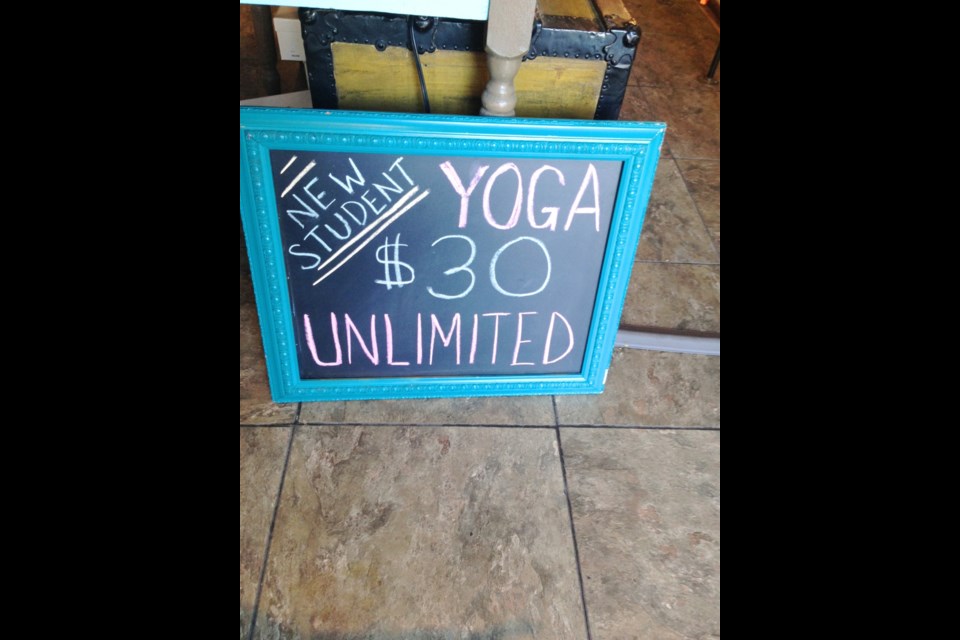 NEW
STUDENT
YOGA
$30
UNLIMITED